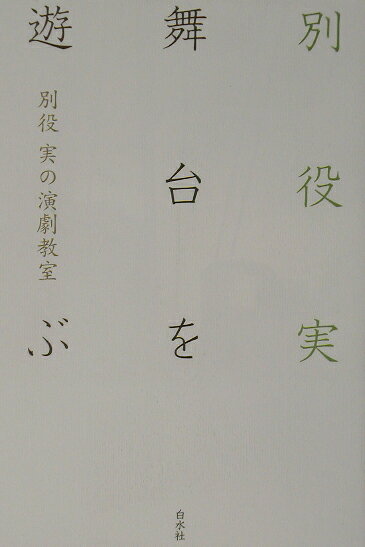 別役実
舞台を
遊ぶ
別役 実の演劇教室
白水社